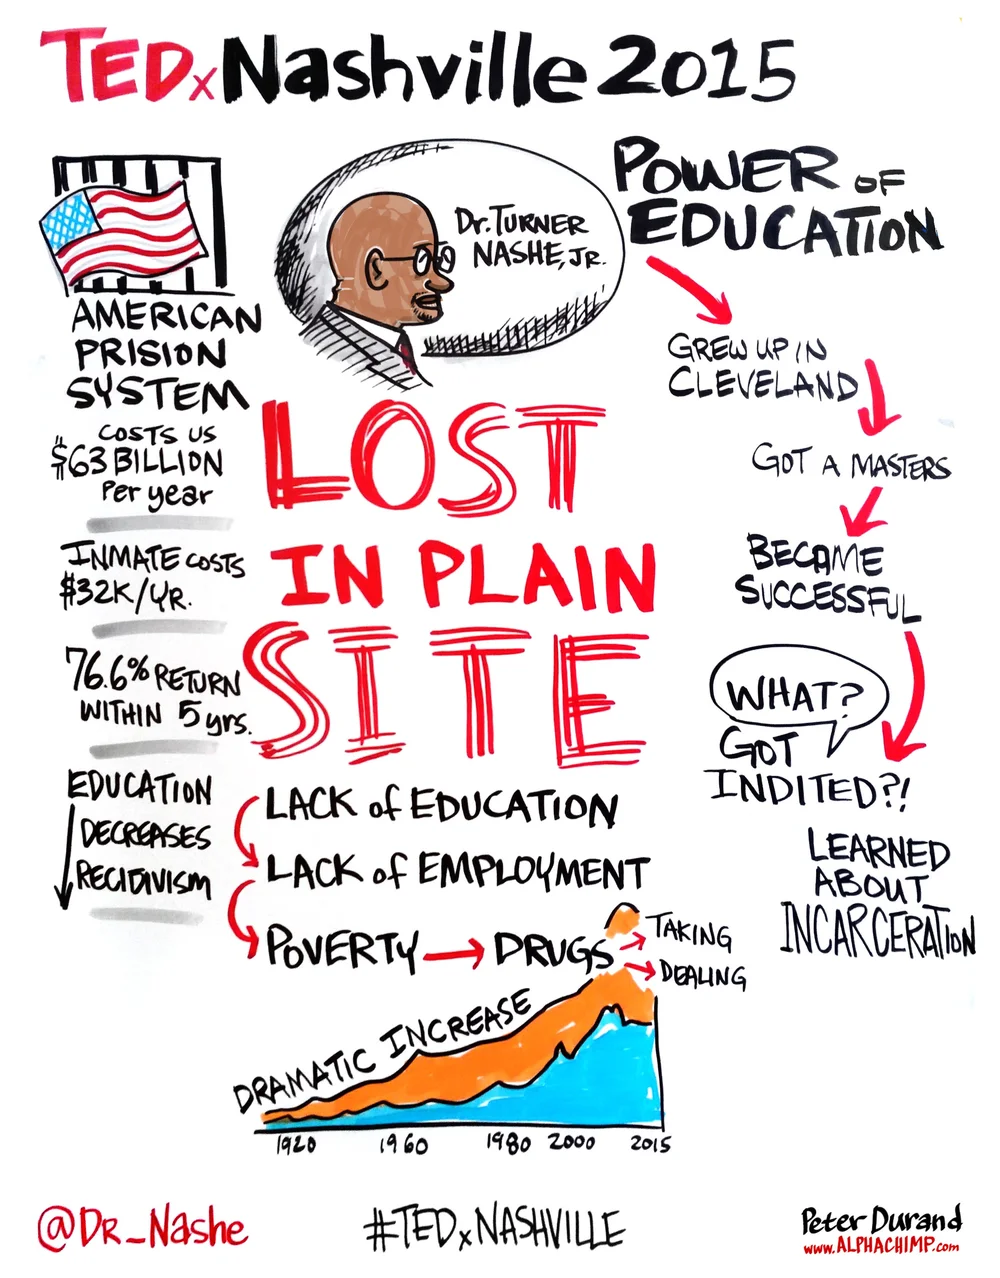 TEDxNashville 2015
AMERICAN
PRISION
SYSTEM
COSTS US
$63 BILLION
Per year
INMATE COSTS
$32K/YR.
76.6% RETURN
WITHIN 5 yrs.
EDUCATION
DECREASES
RECIDIVISM
Dr. TURNER
NASHE, JR.
LOST
IN PLAIN
SITE
LACK of EDUCATION
LACK of EMPLOYMENT
POVERTY → DRUGS
TAKING
DEALING
DRAMATIC INCREASE
1920 1960 1980 2000 2015
POWER OF
EDUCATION
GREW UP IN
CLEVELAND
GOT A MASTERS
BECAME
SUCCESSFUL
WHAT?
GOT
INDITED?!
LEARNED
ABOUT
INCARCERATION
@DR_Nashe
#TEDxNASHVILLE
Peter Durand
www.ALPHACHIMP.com